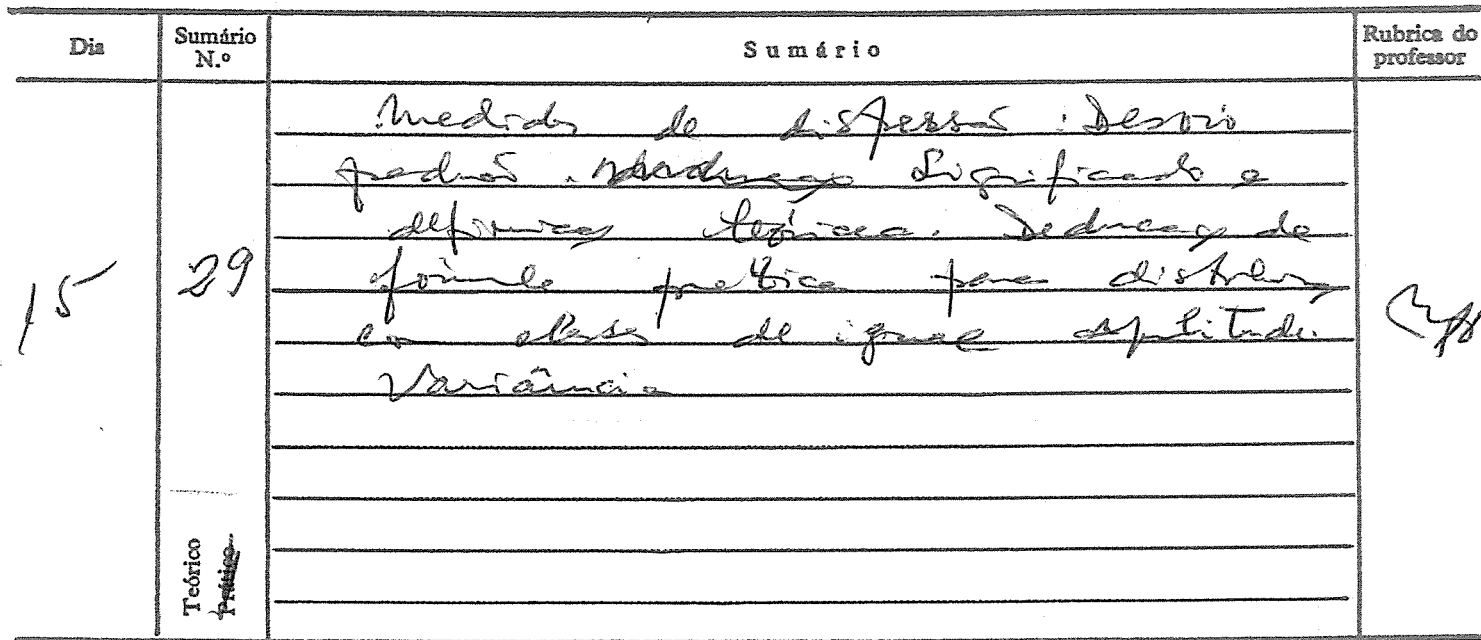 Dia
Sumário N.º
Sumário
Rubrica do professor
15
29
Medidas de dispersão: Desvio
padrão. Significado e
definição teórica. Dedução da
fórmula prática para distribuição
com classes de igual amplitude.
Variância
Teórico
Prático